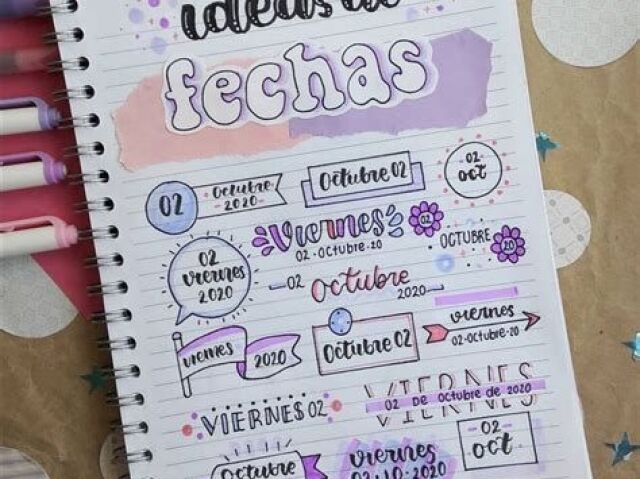 ideas de
fechas
02
Octubre
2020
Octubre 02
02
oct
viernes
02-octubre-20
02
OCTUBRE
20
02
viernes
2020
02
octubre
2020
viernes
2020
Octubre 02
viernes
02-octubre-20
VIERNES 02
VIERNES
02 DE OCTUBRE DE 2020
Octubre
viernes
02-10-2020
02
oct